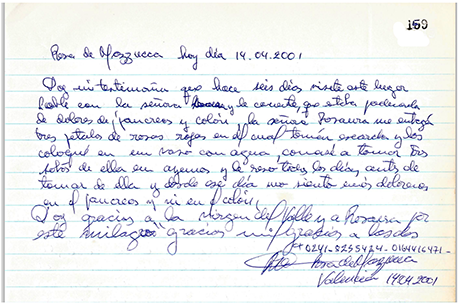 159
Rosa de Mazzucca hoy día 14.04.2001
Doy mi testimonio que hace seis días visite este lugar
hablé con la señora y le comenté, que estaba padeciendo
de dolores de pancreas y colón, la señora Rosaura me entregó
tres petalos de rosas rojas en el cual tomán escarcha y los
coloqué en un vaso con agua, comencé a tomar tres
de ella en ayunas y le rezo todos los días, antes de
tomar de ella y desde ese día no siento más dolores
en el pancreas y ni en el colón.
Doy gracias a la virgen del Valle y a Rosaura por
este milagro" gracias mil gracias a las dos
0241-8255424 - 0164416471-
Rosa de Mazzucca
Valencia 14.04.2001